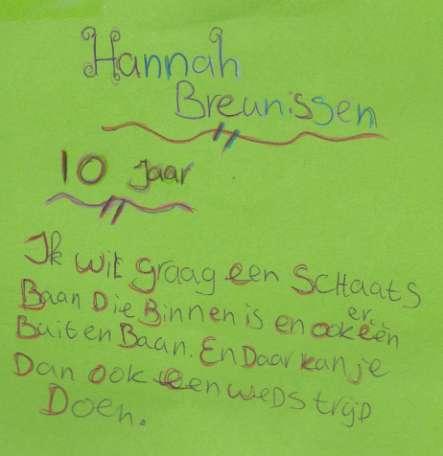 Hannah
Breunissen
10 Jaar
Ik wil graag een SCHaats
Baan Die Binnen is en ook er één
Buiten Baan. En Daar kan je
Dan ook een weDstrijD
Doen.